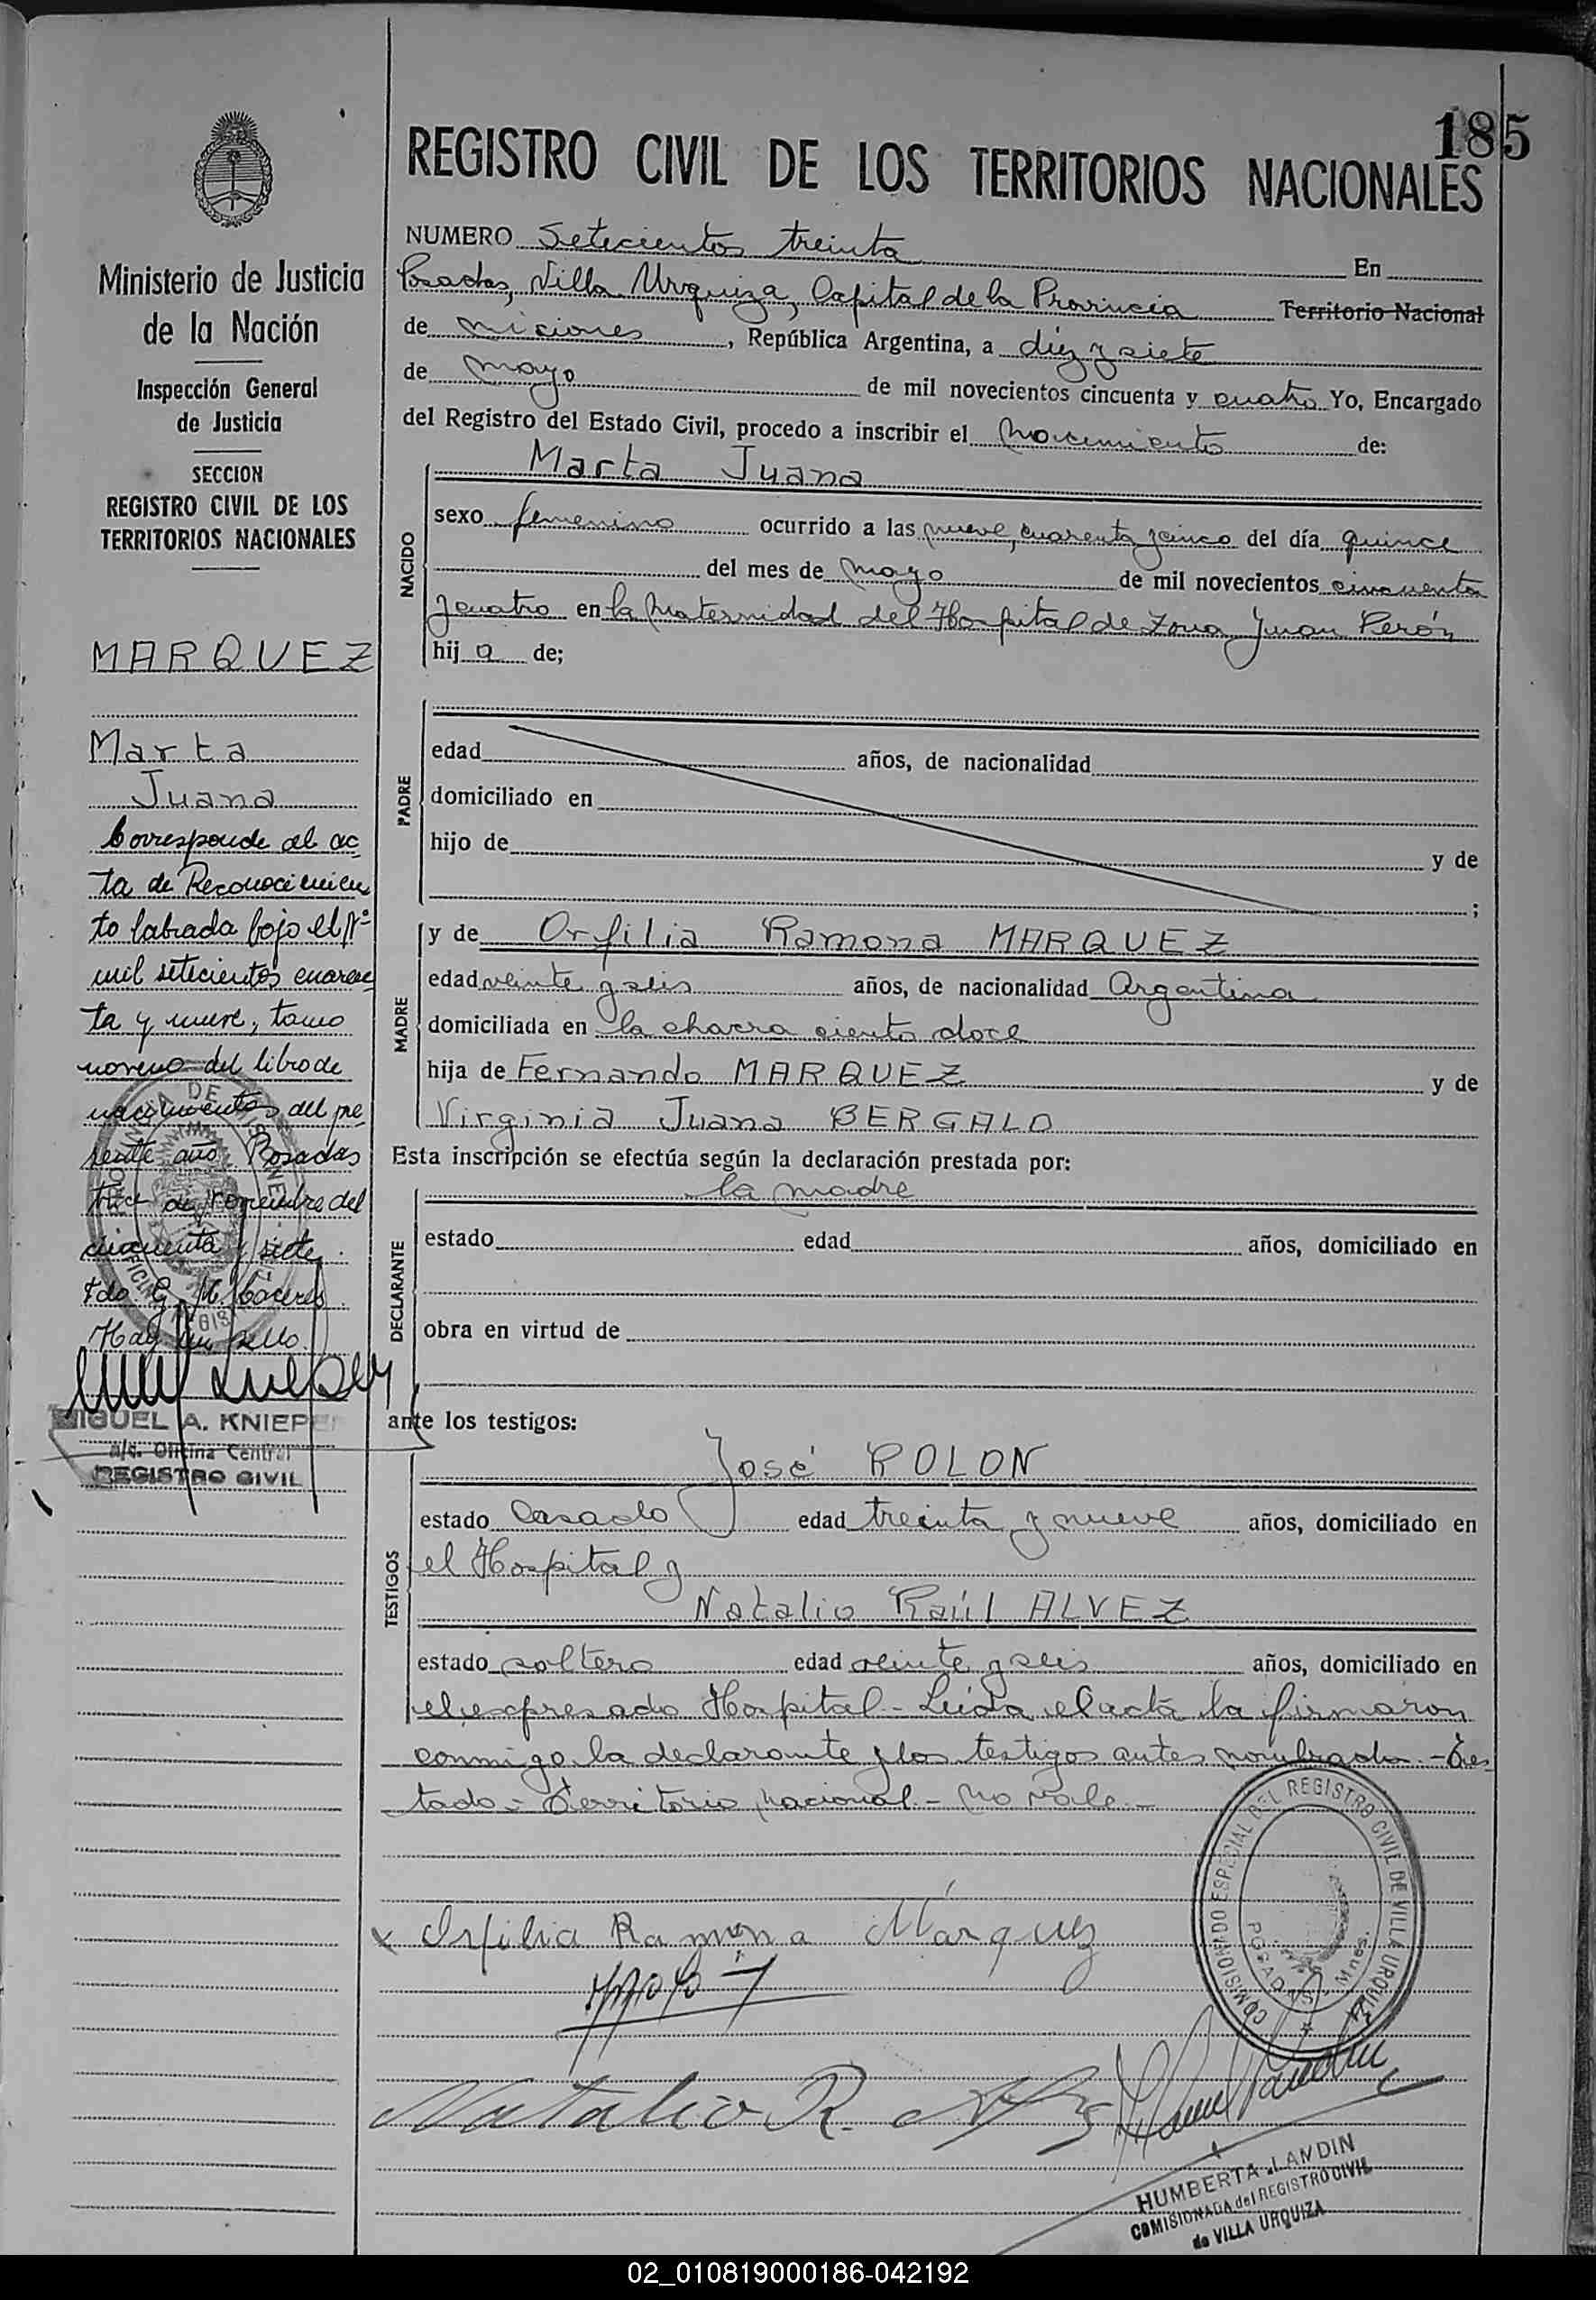 185
REGISTRO CIVIL DE LOS TERRITORIOS NACIONALES
Ministerio de Justicia
de la Nación
Inspección General
de Justicia
SECCION
REGISTRO CIVIL DE LOS
TERRITORIOS NACIONALES
MARQUEZ
Marta
Juana
Corresponde al ac
ta de Reconocimien
to labrada bajo el Nº
mil setecientos cuaren
ta y nueve, tomo
noveno del libro de
nacimientos del pre
sente año. Posadas
de noviembre del
cincuenta y siete.
Fdo. G. M. Cáceres
Hay un sello.
MIGUEL A. KNIEPER
a/c. Oficina Central
REGISTRO CIVIL
NUMERO Setecientos treinta En
Posadas, Villa Urquiza, Capital de la Provincia Territorio Nacional
de misiones, República Argentina, a diez y siete
de mayo de mil novecientos cincuenta y cuatro Yo, Encargado
del Registro del Estado Civil, procedo a inscribir el Nacimiento de:
Marta Juana
NACIDO
sexo femenino ocurrido a las nueve, cuarenta y cinco del día quince
del mes de mayo de mil novecientos cincuenta
y cuatro en la Maternidad del Hospital de Zona Juan Perón
hija de;
PADRE
edad años, de nacionalidad
domiciliado en
hijo de y de
;
MADRE
y de Orfilia Ramona MARQUEZ
edad veinte y seis años, de nacionalidad Argentina
domiciliada en la chacra ciento doce
hija de Fernando MARQUEZ y de
Virginia Juana BERGALO
Esta inscripción se efectúa según la declaración prestada por:
la madre
DECLARANTE
estado edad años, domiciliado en
obra en virtud de
ante los testigos:
José ROLON
TESTIGOS
estado Casado edad treinta y nueve años, domiciliado en
el Hospital y
Natalio Raúl ALVEZ
estado soltero edad veinte y seis años, domiciliado en
el expresado Hospital - Leída el acta la firmaron
conmigo la declarante y los testigos antes nombrados. - Tes
tado - Territorio Nacional - No vale -
COMISIONADO ESPECIAL DEL REGISTRO CIVIL DE VILLA URQUIZA
POSADAS, Mnes.
x Orfilia Ramona Márquez
Natalio R.
HUMBERTA LANDIN
COMISIONADA del REGISTRO CIVIL
de VILLA URQUIZA
02_010819000186-042192